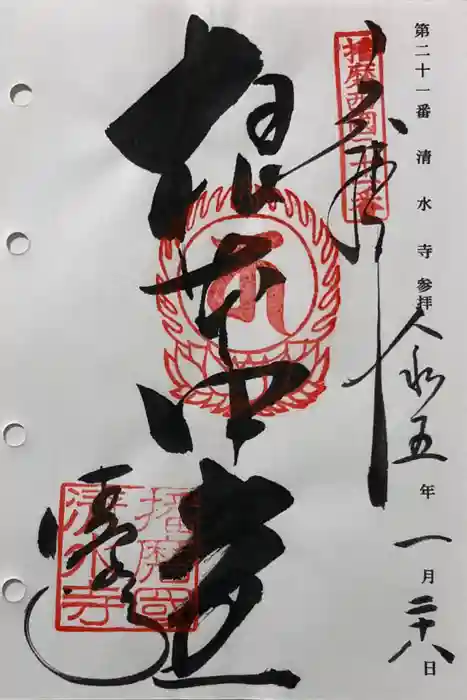 第二十一番 清水寺 参拝 令和五年 一月二十八日
奉拝
播磨西國廿一番
根本中堂
播磨國
清水寺